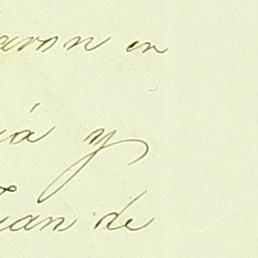 aron en
ia y
Juan de